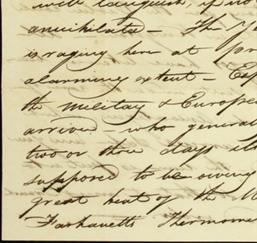 will languish if
annihilated — The
is raging here at
alarming extent —
the military & Europe
arrive — who general
two or three days its
supposed to be owing
great heat of the W
Farhanetts Thermome